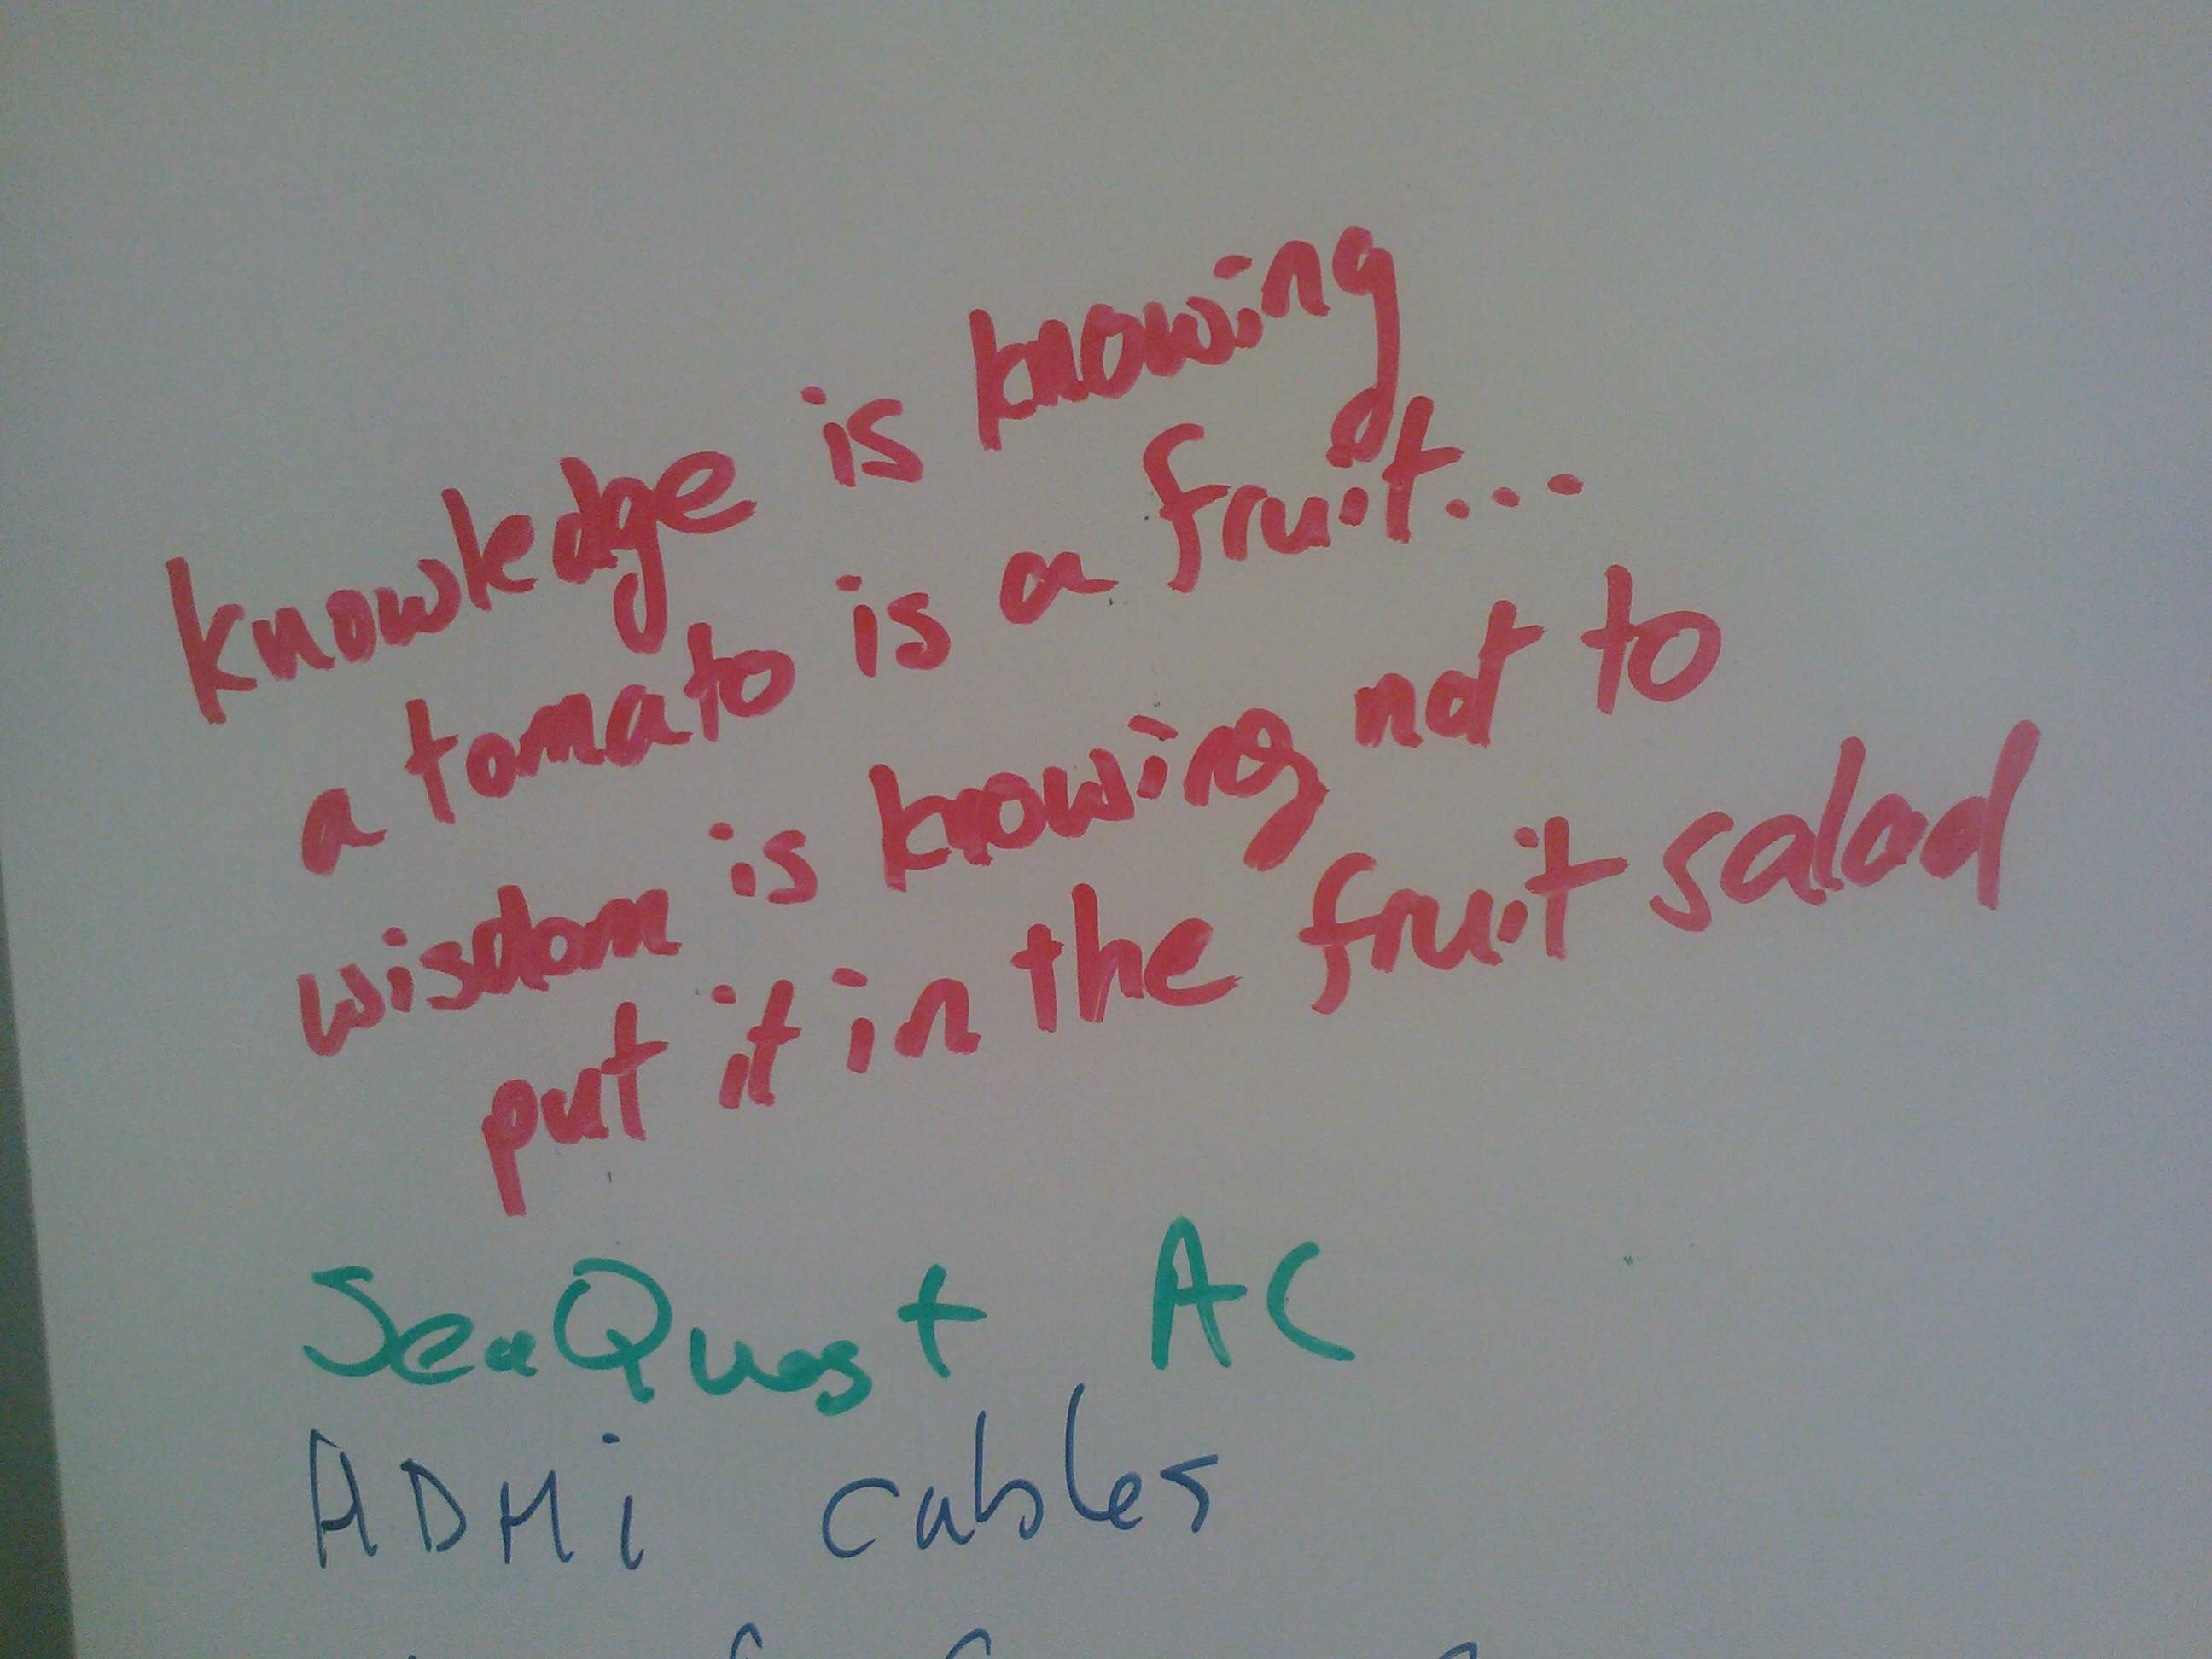 knowledge is knowing
a tomato is a fruit...
wisdom is knowing not to
put it in the fruit salad
SeaQuest AC
HDMi cables